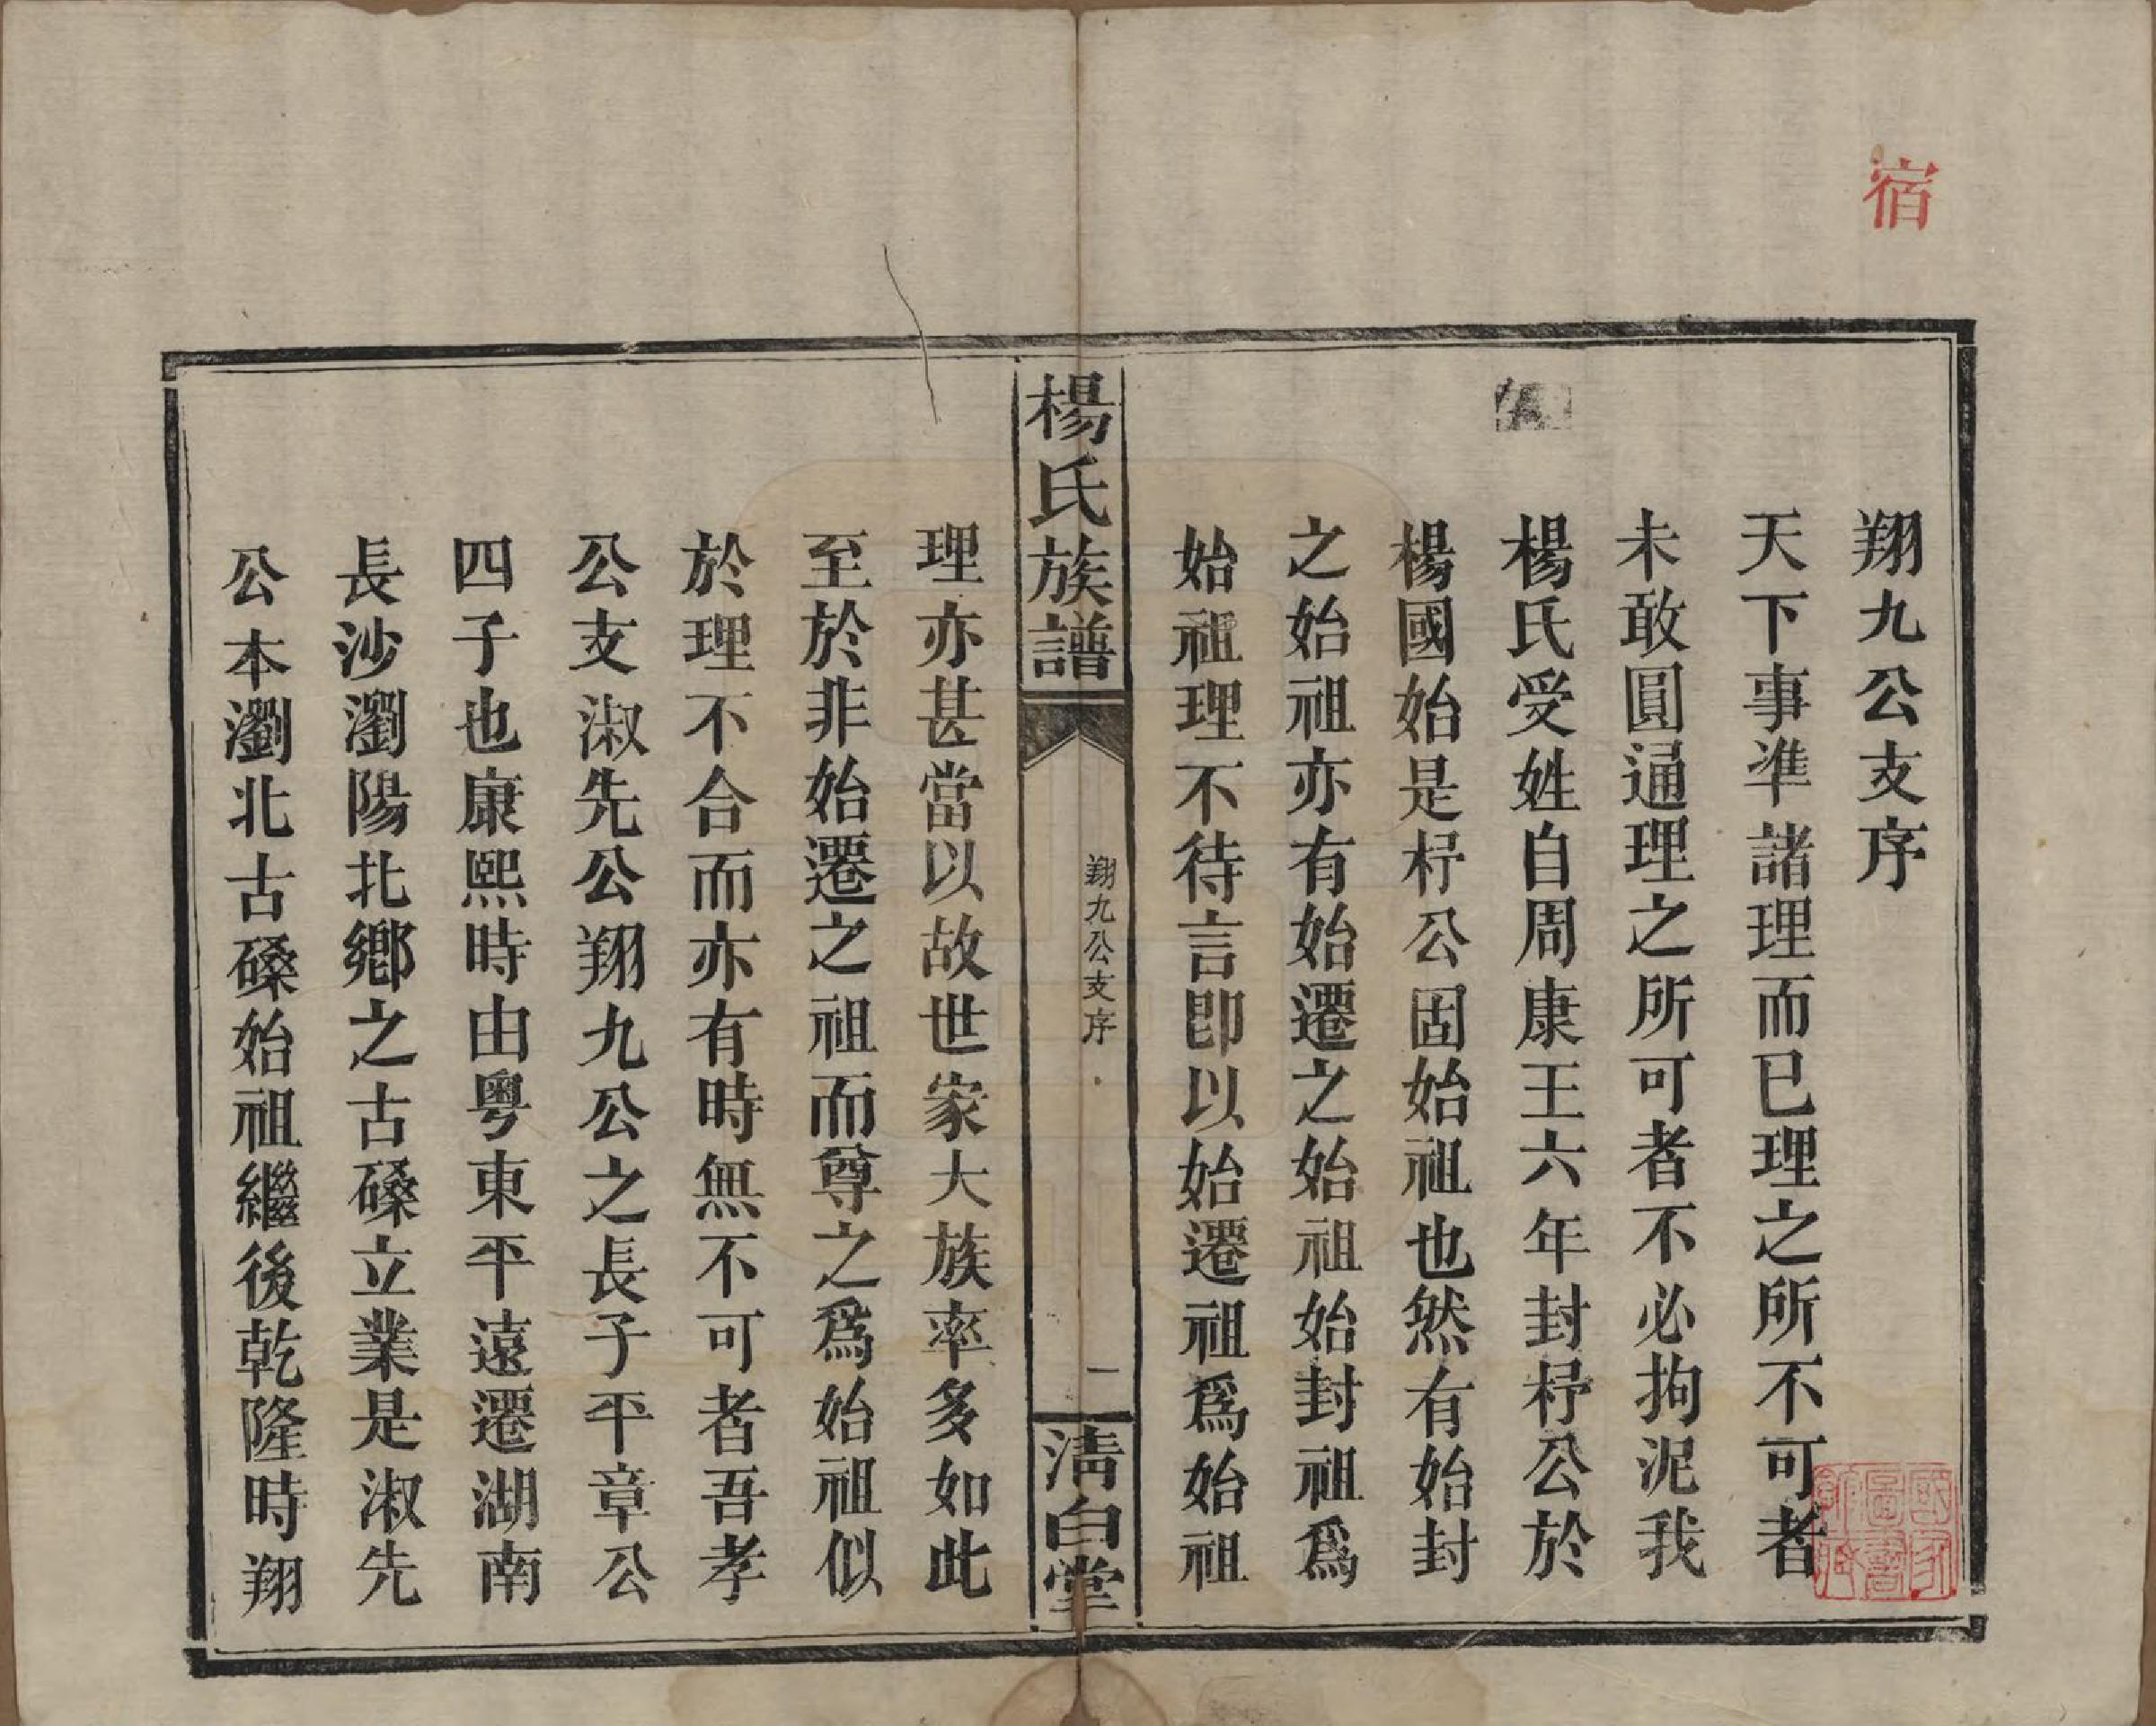 宿
翔九公支序
天下事準諸理而已理之所不可者
未敢圓通理之所可者不必拘泥我
楊氏受姓自周康王六年封杼公於
楊國始是杼公固始祖也然有始封
之始祖亦有始遷之始祖始封祖爲
始祖理不待言即以始遷祖爲始祖
楊氏族譜
翔九公支序
一
清白堂
理亦甚當以故世家大族率多如此
至於非始遷之祖而尊之爲始祖似
於理不合而亦有時無不可者吾孝
公支淑先公翔九公之長子平章公
四子也康熙時由粵東平遠遷湖南
長沙瀏陽北鄉之古磉立業是淑先
公本瀏北古磉始祖繼後乾隆時翔
國家圖書館藏